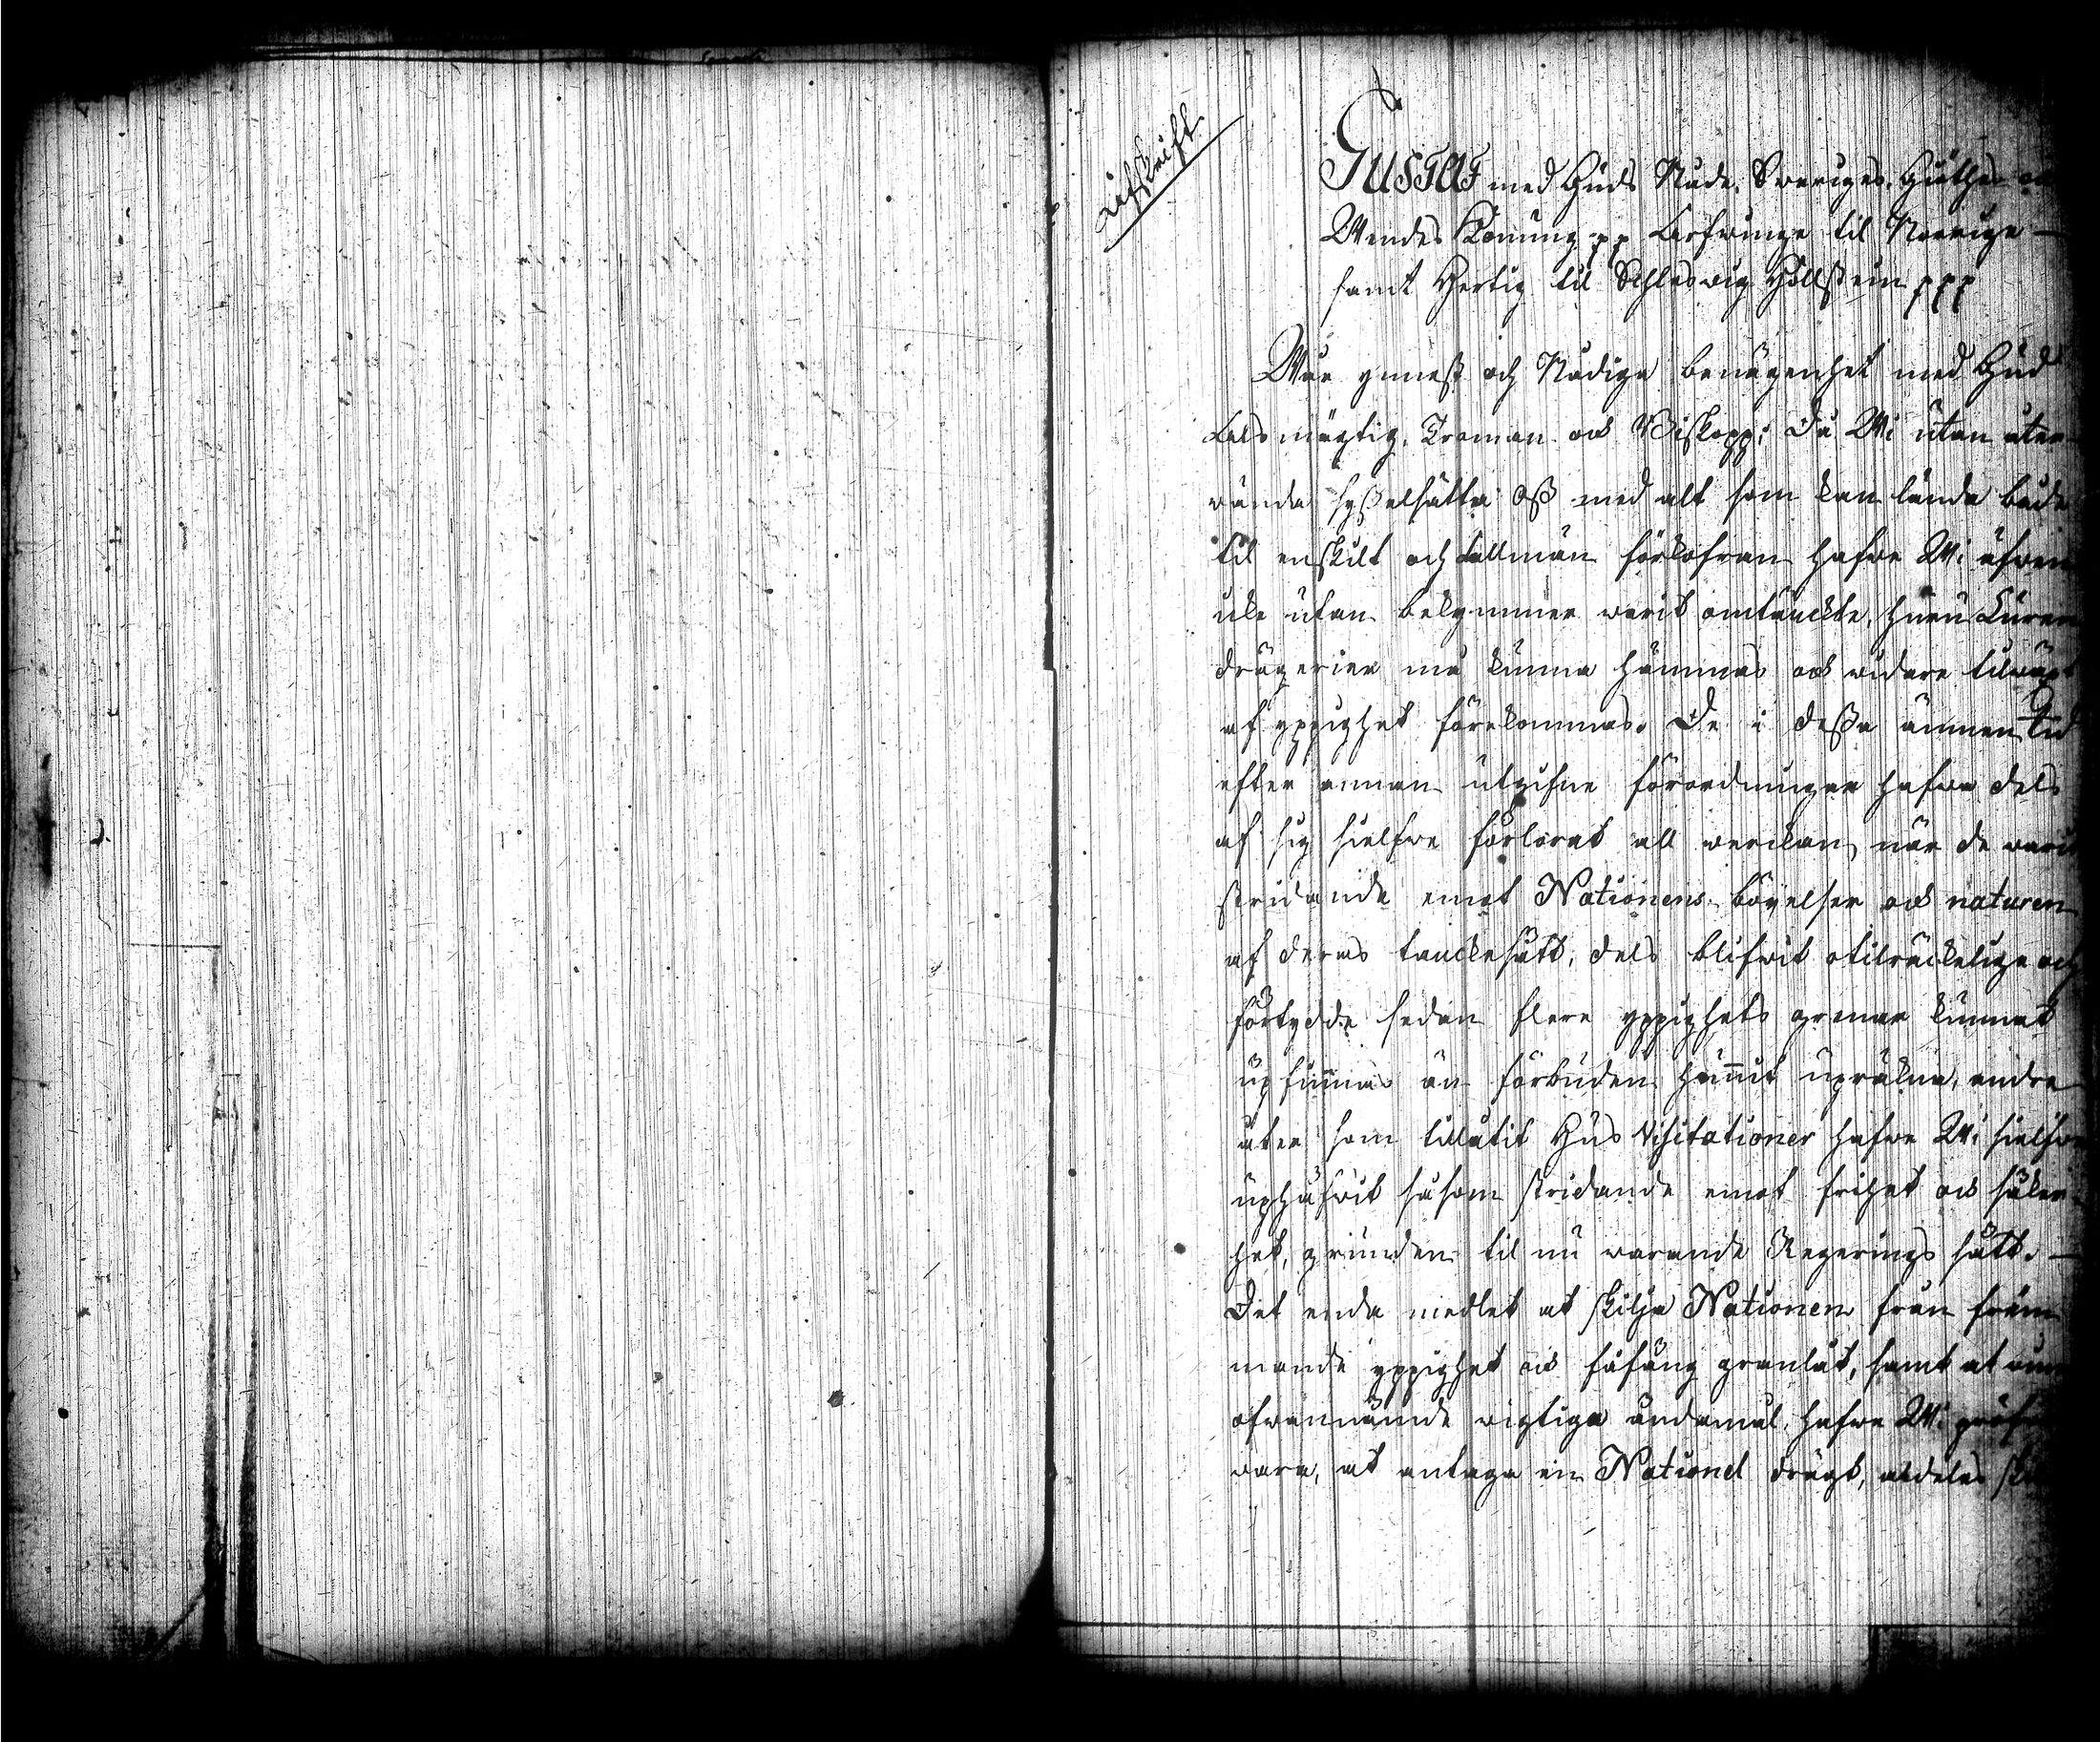 Afskrift
GUSTAF med Guds Nåde, Sweriges, Göthes och
Wendes Konung pp Arfwinge til Norrige —
samt Hertig til Schleswig Hollstein ppp
Wår ynnest och Nådige benägenhet med Gud
Alsmägtig, Troman och Biskopp; Då Wi utan åter-
wända sysselsätta Oss med alt som kan lända både
til enskilt och allmän förkofran hafwe Wi äfwen
icke utan bekymmer warit omtänckte, huru Luren-
drägerier må kunna hämmas och widare tilwäxt
af yppighet förekommas. De i dessa ämnen tid
efter annan utgifne förordningar hafwa dels
af sig sielfwe förlorat all werckan, när de warit
stridande emot Nationens böyelser och naturen
af deras tanckesätt, dels blifwit otilräckelige och
förtydde sedan flere yppighets grenar kunnat
upfinnas än förbuden hunnit upräkna, andra
åter som tillåtit Hus Visitationer hafwe Wi sielfwe
uphäfwit såsom stridande emot frihet och säker-
het, grunden til nu warande Regerings sätt. —
Det enda medlet at skilja Nationen från främ-
mande yppighet och fåfäng granlåt, samt at winna
ofwannämde wigtiga ändamål, hafwe Wi
wara, at antaga en Nationel drägt, aldeles